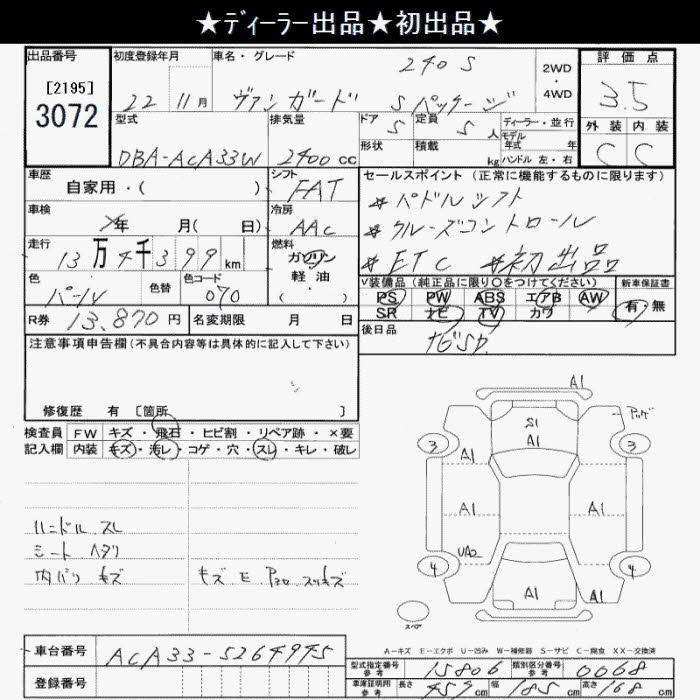 ★ディーラー出品★初出品★
出品番号 初度登録年月 車名・グレード 240 S 2WD・4WD 評価点
[2195]
3072
22 11月 ヴァンガード Sパッケージ 3.5
型式 排気量 ドア 5 定員 5人 ディーラー・並行 外装 内装
モデル年式 年
DBA-ACA33W 2400cc 形状 積載 kg ハンドル 左・右 C C
車歴 自家用・( ) シフト FAT セールスポイント (正常に機能するものに限ります)
＊パドルシフト
車検 年 月( 日) 冷房 AAC ＊クルーズコントロール
走行 13万4千399km 燃料 ガソリン・軽・油・( ) ＊ETC ＊初出品
色 パール 色替 色コード 070 V装備品 (純正品に限り○をつけてください) 新車保証書
PS PW ABS エアB AW 有・無
R券 13,870円 名変期限 月 日 SR ナビ TV カワ
注意事項申告欄(不具合内容等は具体的に記入して下さい) 後日品 ナビSD.
修復歴 有 [箇所 ]
検査員 FW キズ・飛石・ヒビ割・リペア跡・×要
記入欄 内装 キズ・汚レ・コゲ・穴・スレ・キレ・破レ
A1
S1
A1
3 3
A1
A1 A1
UA2
4 4
A1 A1
スペア
ハンドル スレ
シート ヘタリ
内バリ キズ キズ E
A－キズ E－エクボ U－凹み W－補修跡 S－サビ C－腐食 XX－交換済
車台番号 ACA33-5264945
型式指定番号 参考 15806 類別区分番号 参考 0068
登録番号
車庫証明用 参考 長さ 457cm 幅 185cm 高さ 168cm